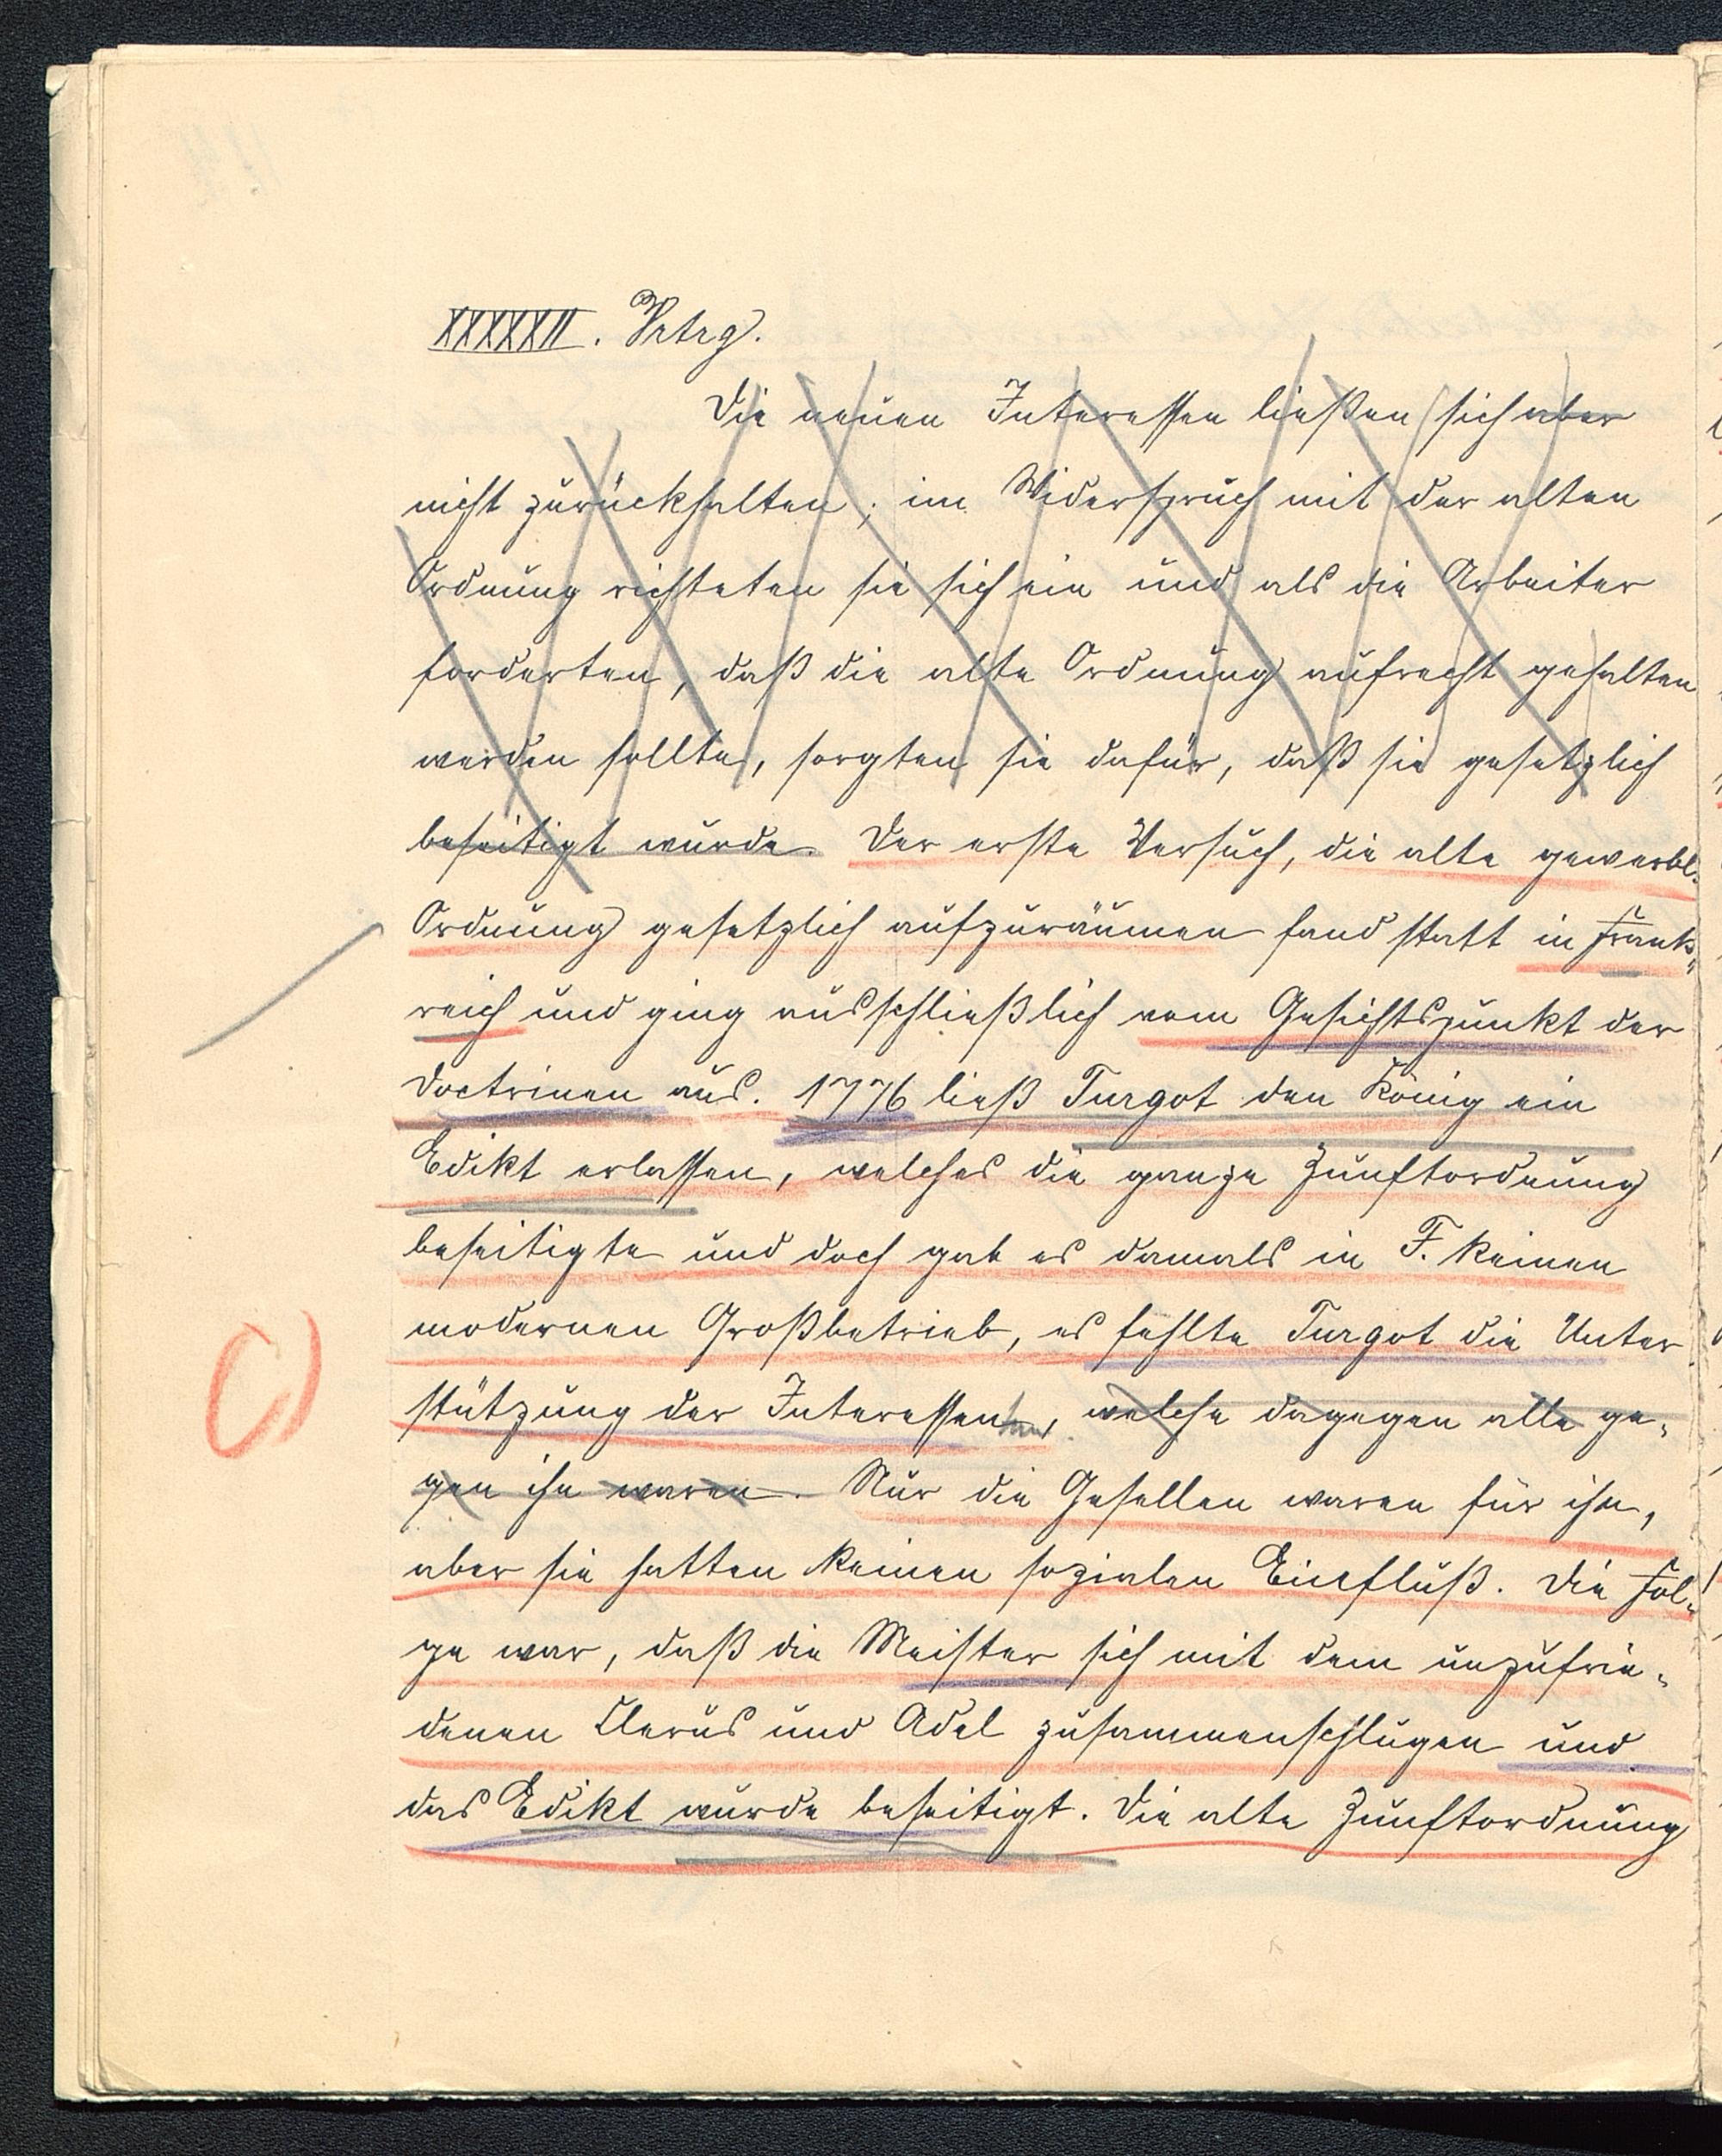 XXXXXII. Vrtrg.
Die neuen Interessen ließen sich aber
nicht zurückhalten; im Widerspruch mit der alten
Ordnung richteten sie sich ein und als die Arbeiter
forderten, daß die alte Ordnung aufrecht gehalten
werden sollte, sorgten sie dafür, daß sie gesetzlich
beseitigt wurde. Der erste Versuch, die alte gewerbl.
Ordnung gesetzlich aufzuräumen fand statt in Frank„
reich und ging ausschließlich vom Gesichtspunkt der
Doctrinen aus. 1776 ließ Turgot den König ein
Edikt erlassen, welches die ganze Zunftordnung
beseitigte und doch gab es damals in F. keinen
modernen Großbetrieb, es fehlte Turgot die Unter
stützung der Interessenten, welche dagegen alle ge„
gen ihn waren. Nur die Gesellen waren für ihn,
aber sie hatten keinen sozialen Einfluß. Die Fol„
ge war, daß die Meister sich mit dem unzufrie„
denen Clerus und Adel zusammenschlugen und
das Edikt wurde beseitigt. Die alte Zunftordnung
C)